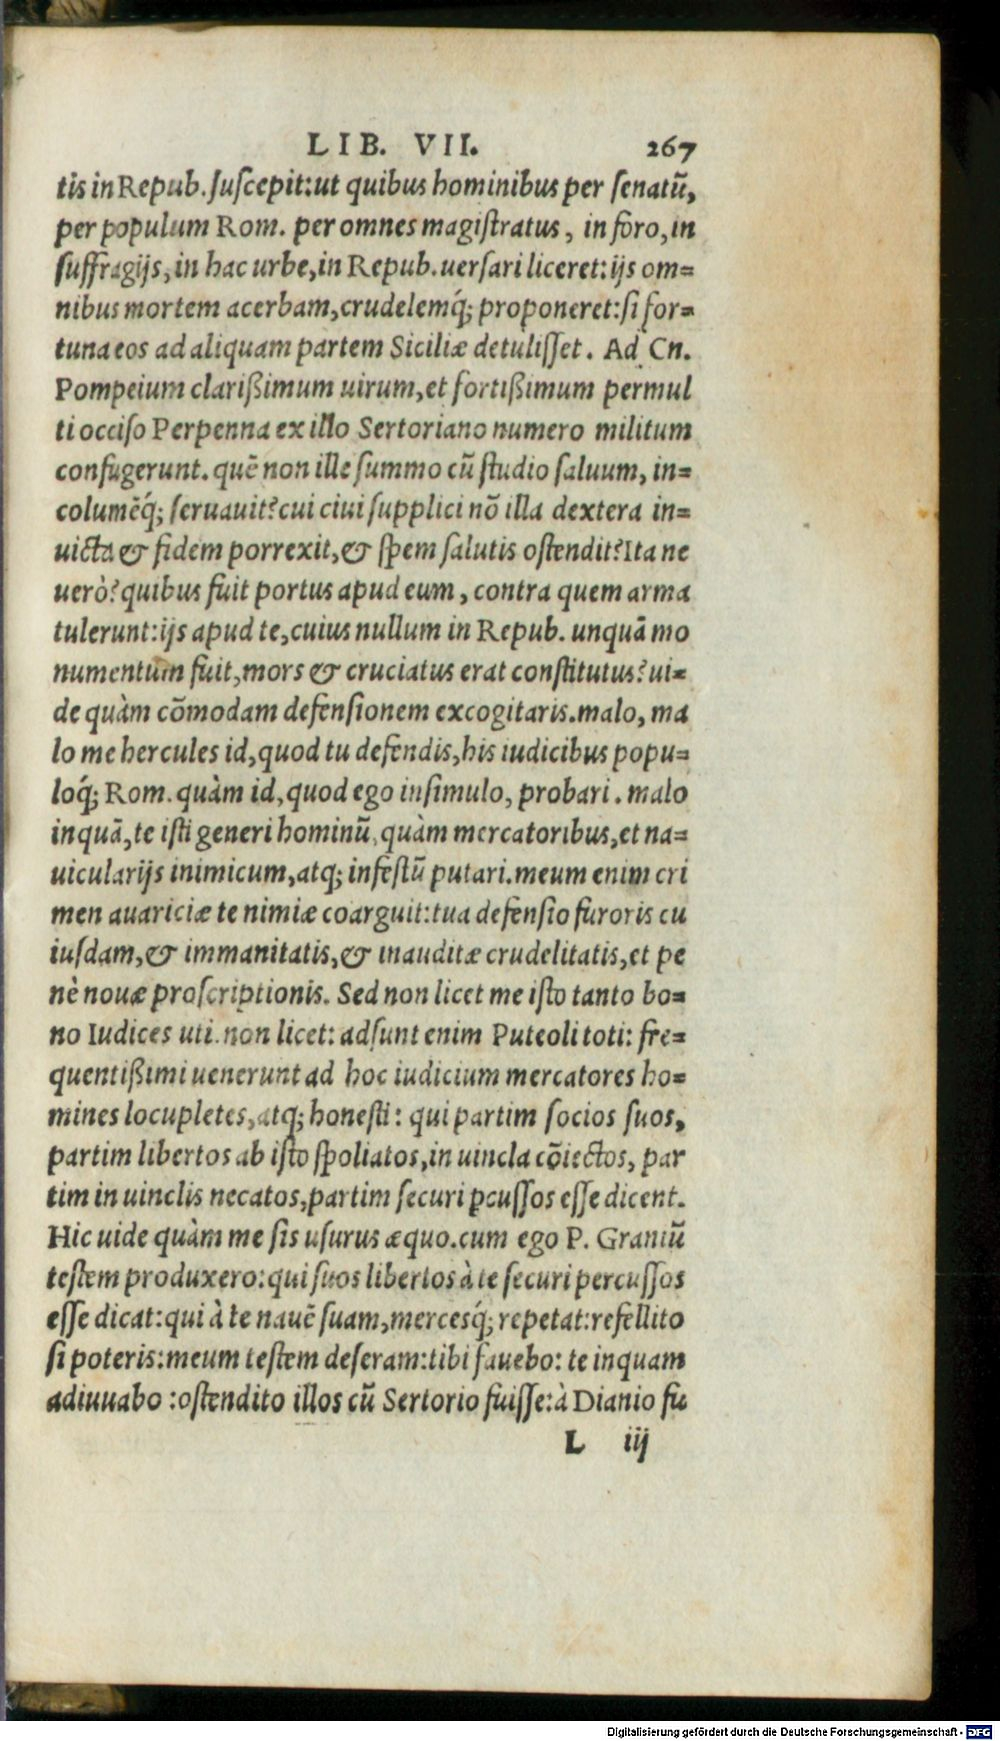 LIB. VII. 267
tis in Repub. ſuſcepit: ut quibus hominibus per ſenatũ,
per populum Rom. per omnes magiſtratus, in foro, in
ſuffragijs, in hac urbe, in Repub. uerſari liceret: ijs om=
nibus mortem acerbam, crudelemq́; proponeret: ſi for=
tuna eos ad aliquam partem Siciliæ detuliſſet. Ad Cn.
Pompeium clarißimum uirum, et fortißimum permul
ti occiſo Perpenna ex illo Sertoriano numero militum
confugerunt. quẽ non ille ſummo cũ ſtudio ſaluum, in=
columẽq́; ſeruauit? cui ciui ſupplici nõ illa dextera in=
uicta & fidem porrexit, & ſpem ſalutis oſtendit? Ita ne
uerò? quibus fuit portus apud eum, contra quem arma
tulerunt: ijs apud te, cuius nullum in Repub. unquã mo
numentum fuit, mors & cruciatus erat conſtitutus? ui=
de quàm cõmodam defenſionem excogitaris. malo, ma
lo me hercules id, quod tu defendis, his iudicibus popu=
loq́; Rom. quàm id, quod ego inſimulo, probari. malo
inquã, te iſti generi hominũ, quàm mercatoribus, et na=
uicularijs inimicum, atq; infeſtũ putari. meum enim cri
men auariciæ te nimiæ coarguit: tua defenſio furoris cu
iuſdam, & immanitatis, & inauditæ crudelitatis, et pe
nè nouæ proſcriptionis. Sed non licet me iſto tanto bo=
no Iudices uti. non licet: adſunt enim Puteoli toti: fre=
quentißimi uenerunt ad hoc iudicium mercatores ho=
mines locupletes, atq; honeſti: qui partim ſocios ſuos,
partim libertos ab iſto ſpoliatos, in uincla cõiectos, par
tim in uinclis necatos, partim ſecuri ꝑcuſſos eſſe dicent.
Hic uide quàm me ſis uſurus æquo. cum ego P. Graniũ
teſtem produxero: qui ſuos libertos à te ſecuri percuſſos
eſſe dicat: qui à te nauẽ ſuam, mercesq́; repetat: refellito
ſi poteris: meum teſtem deſeram: tibi fauebo: te inquam
adiuuabo: oſtendito illos cũ Sertorio fuiſſe: à Dianio fu
L iij
Digitalisierung gefördert durch die Deutsche Forschungsgemeinschaft - DFG